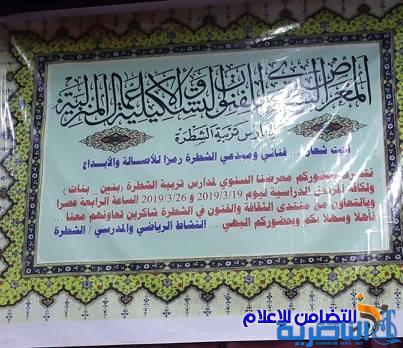 المعرض السنوي للفنون التشكيلية والأعمال المنزلية
لمدارس تربية الشطرة
تحت شعار ... فناني ومبدعي الشطرة رمزا للأصالة والأبداع
نتشرف بحضوركم معرضنا السنوي لمدارس تربية الشطرة (بنين _ بنات)
ولكافة المراحل الدراسية ليوم 2019/3/19 و 2019/3/26 الساعة الرابعة عصرا
وبالتعاون مع منتدى الثقافة والفنون في الشطرة شاكرين تعاونهم معنا ...
فأهلا وسهلا بكم وبحضوركم البهي ... النشاط الرياضي والمدرسي / الشطرة
التضامن للإعلام
الناصرية